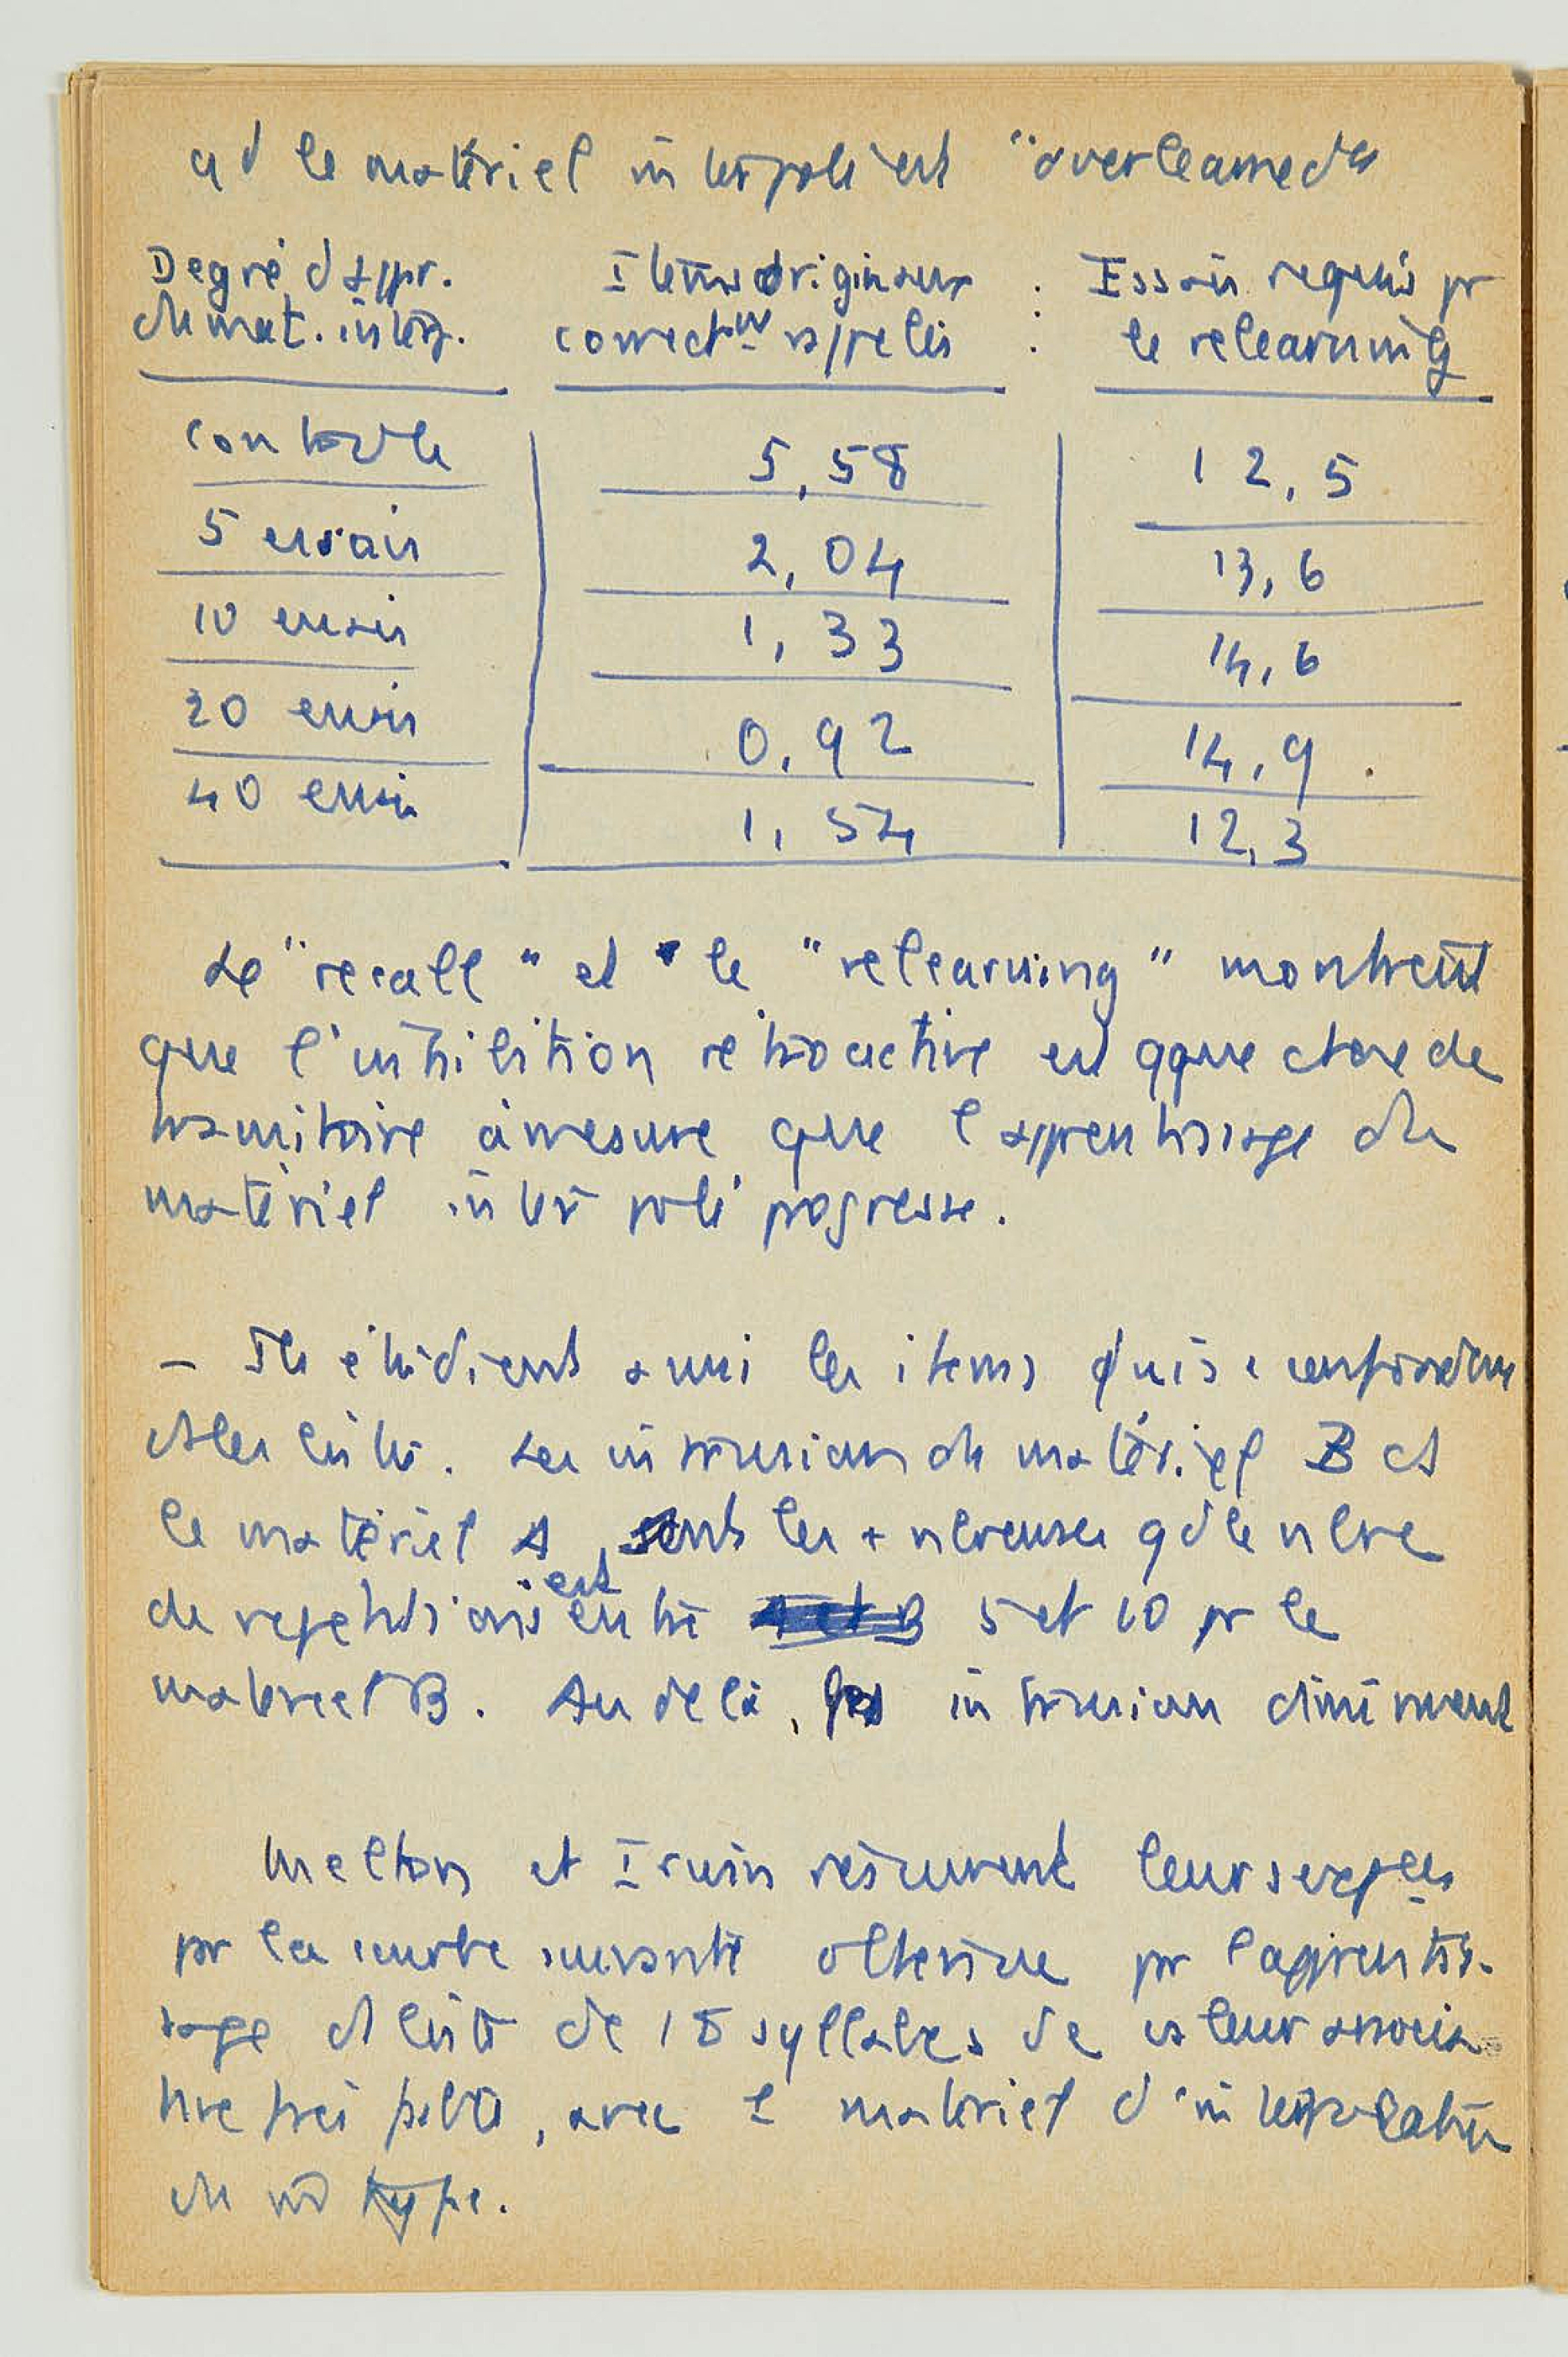 qd le matériel interpolé est "overlearned"
Degré d appr. Items originaux : Essais requis pr
du mat. interp. correct. rappelés : le relearning
contrôle 5,58 12,5
5 essais 2,04 13,6
10 essais 1,33 14,6
20 essais 0,92 14,9
40 essais 1,54 12,3
Le "recall" et le "relearning" montrent
que l'inhibition rétroactive est qque chose de
transitoire à mesure que l apprentissage du
matériel interpolé progresse.
- Ils étudient aussi les items qui s
listes. Les intrusions du matériel B ds
le matériel A sont les + nbreuses qd le nbre
de répétitions est entre 5 et 10 pr le
matériel B. Au delà, les intrusions diminuent
Melton et Irwin résument leurs exp
pr la courbe suivante obtenue pr l'apprentis-
sage d liste de 18 syllabes de valeur associa-
tive très faible, avec 1 matériel d'interpolation
du type.